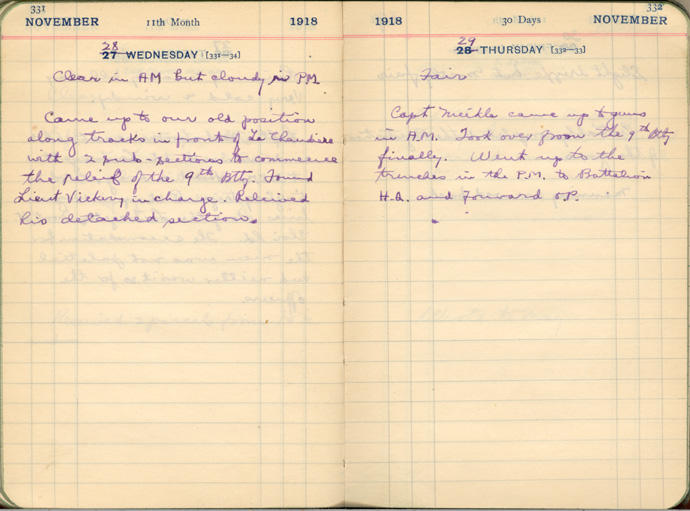 331
NOVEMBER 11th Month 1918
28
27 WEDNESDAY [331—34]
Clear in AM but cloudy in PM
Came up to our old position
along tracks in front of La Chaudiere
with 2 sub-sections to commence
the relief of the 9th Btty. Found
Lieut Vickery in charge. Relieved
his detached section.
332
1918 30 Days NOVEMBER
29
28 THURSDAY [332—33]
Fair
Capt Meikle came up to guns
in A.M. Took over from the 9th Btty
finally. Went up to the
trenches in the P.M. to Battalion
H.Q. and Forward O.P.